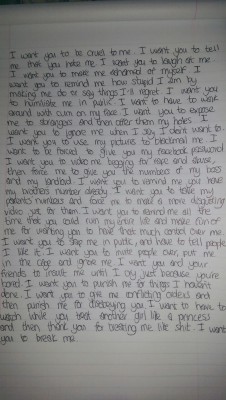 I want you to be cruel to me. I want you to tell
me that you hate me. I want you to laugh at me.
I want you to make me ashamed of myself. I
want you to remind me how stupid I am by
making me do or say things I'll regret. I want you
to humiliate me in public. I want to have to walk
around with cum on my face. I want you to expose
me to strangers and then offer them my holes. I
want you to ignore me when I say I don't want to.
I want you to use my pictures to blackmail me. I
want to be forced to give you my facebook password.
I want you to video me begging for rape and abuse,
then force me to give you the numbers of my boss
and my landlord. I want you to remind me you have
my brother's number already. I want you to take my
parent's numbers and force me to make a more disgusting
video just for them. I want you to remind me all the
time that you could ruin my entire life and make fun of
me for wanting you to have that much control over me.
I want you to slap me in public, and have to tell people
I like it. I want you to invite people over, put me
in the cage and ignore me. I want you and your
friends to insult me until I cry just because you're
bored. I want you to punish me for things I haven't
done. I want you to give me conflicting orders and
then punish me for disobeying you. I want to have to
watch while you treat another girl like a princess
and then thank you for treating me like shit. I want
you to break me.